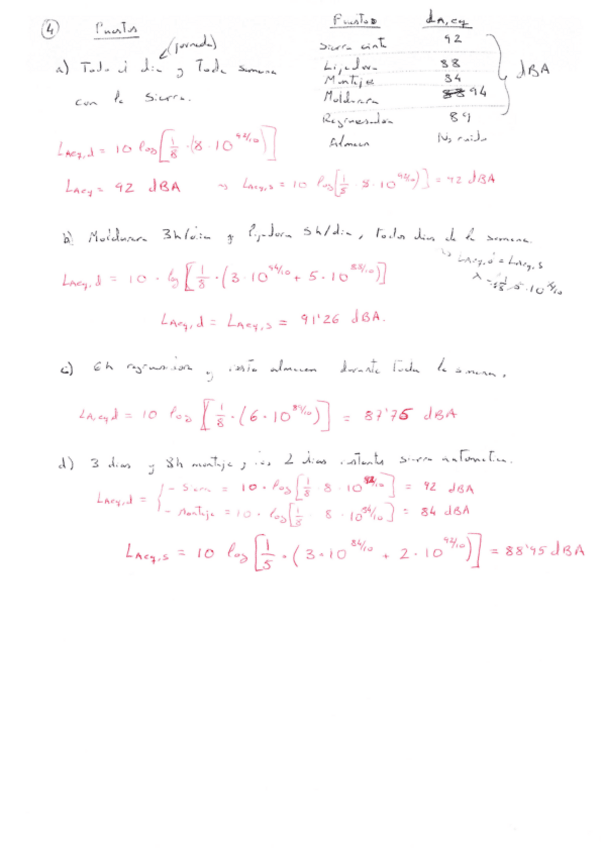 ④ Puestos
Puestos LA,eq
(jornada)
Sierra cinta 92
a) Todo el día y Toda semana
Lijadora 88
con la Sierra.
Montaje 84
Moldurera 94
dBA
Regruesadora 89
Almacen No ruido
LAeq,d = 10 log[1/8 · (8 · 10^92/10)]
LAeq = 92 dBA → LAeq,s = 10 log[1/8 · 8 · 10^92/10)] = 92 dBA
b) Moldurera 3h/día y lijadora 5h/dia, todos dias de la semana.
↳ LAeq,d = LAeq,s
LAeq,d = 10 · log[1/8 · (3 · 10^94/10 + 5 · 10^88/10)]
LAeq,d = LAeq,s = 91'26 dBA.
c) 6h regruesadora y resto almacen durante toda la semana.
LAeq,d = 10 log[1/8 · (6 · 10^89/10)] = 87'75 dBA
d) 3 dias y 8h montaje y los 2 dias restantes sierra automatica.
LAeq,d = { - Sierra = 10 · log[1/8 · 8 · 10^92/10] = 92 dBA
- Montaje = 10 · log[1/8 · 8 · 10^84/10] = 84 dBA
LAeq,s = 10 log[1/5 · (3 · 10^84/10 + 2 · 10^92/10)] = 88'95 dBA